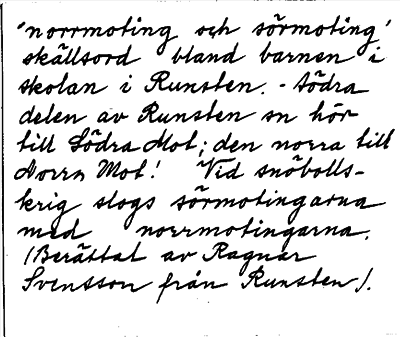 'norrmoting och sörmoting'
skällsord bland barnen i
skolan i Runsten. - Södra
delen av Runsten sn hör
till Södra Mot; den norra till
Norra Mot! Vid snöbolls-
krig slogs sörmotingarna
med norrmotingarna.
(Berättat av Ragnar
Svensson från Runsten).